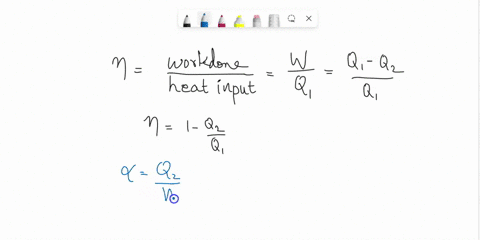 η = workdone / heat input = W / Q₁ = Q₁ - Q₂ / Q₁
η = 1 - Q₂ / Q₁
α = Q₂ /